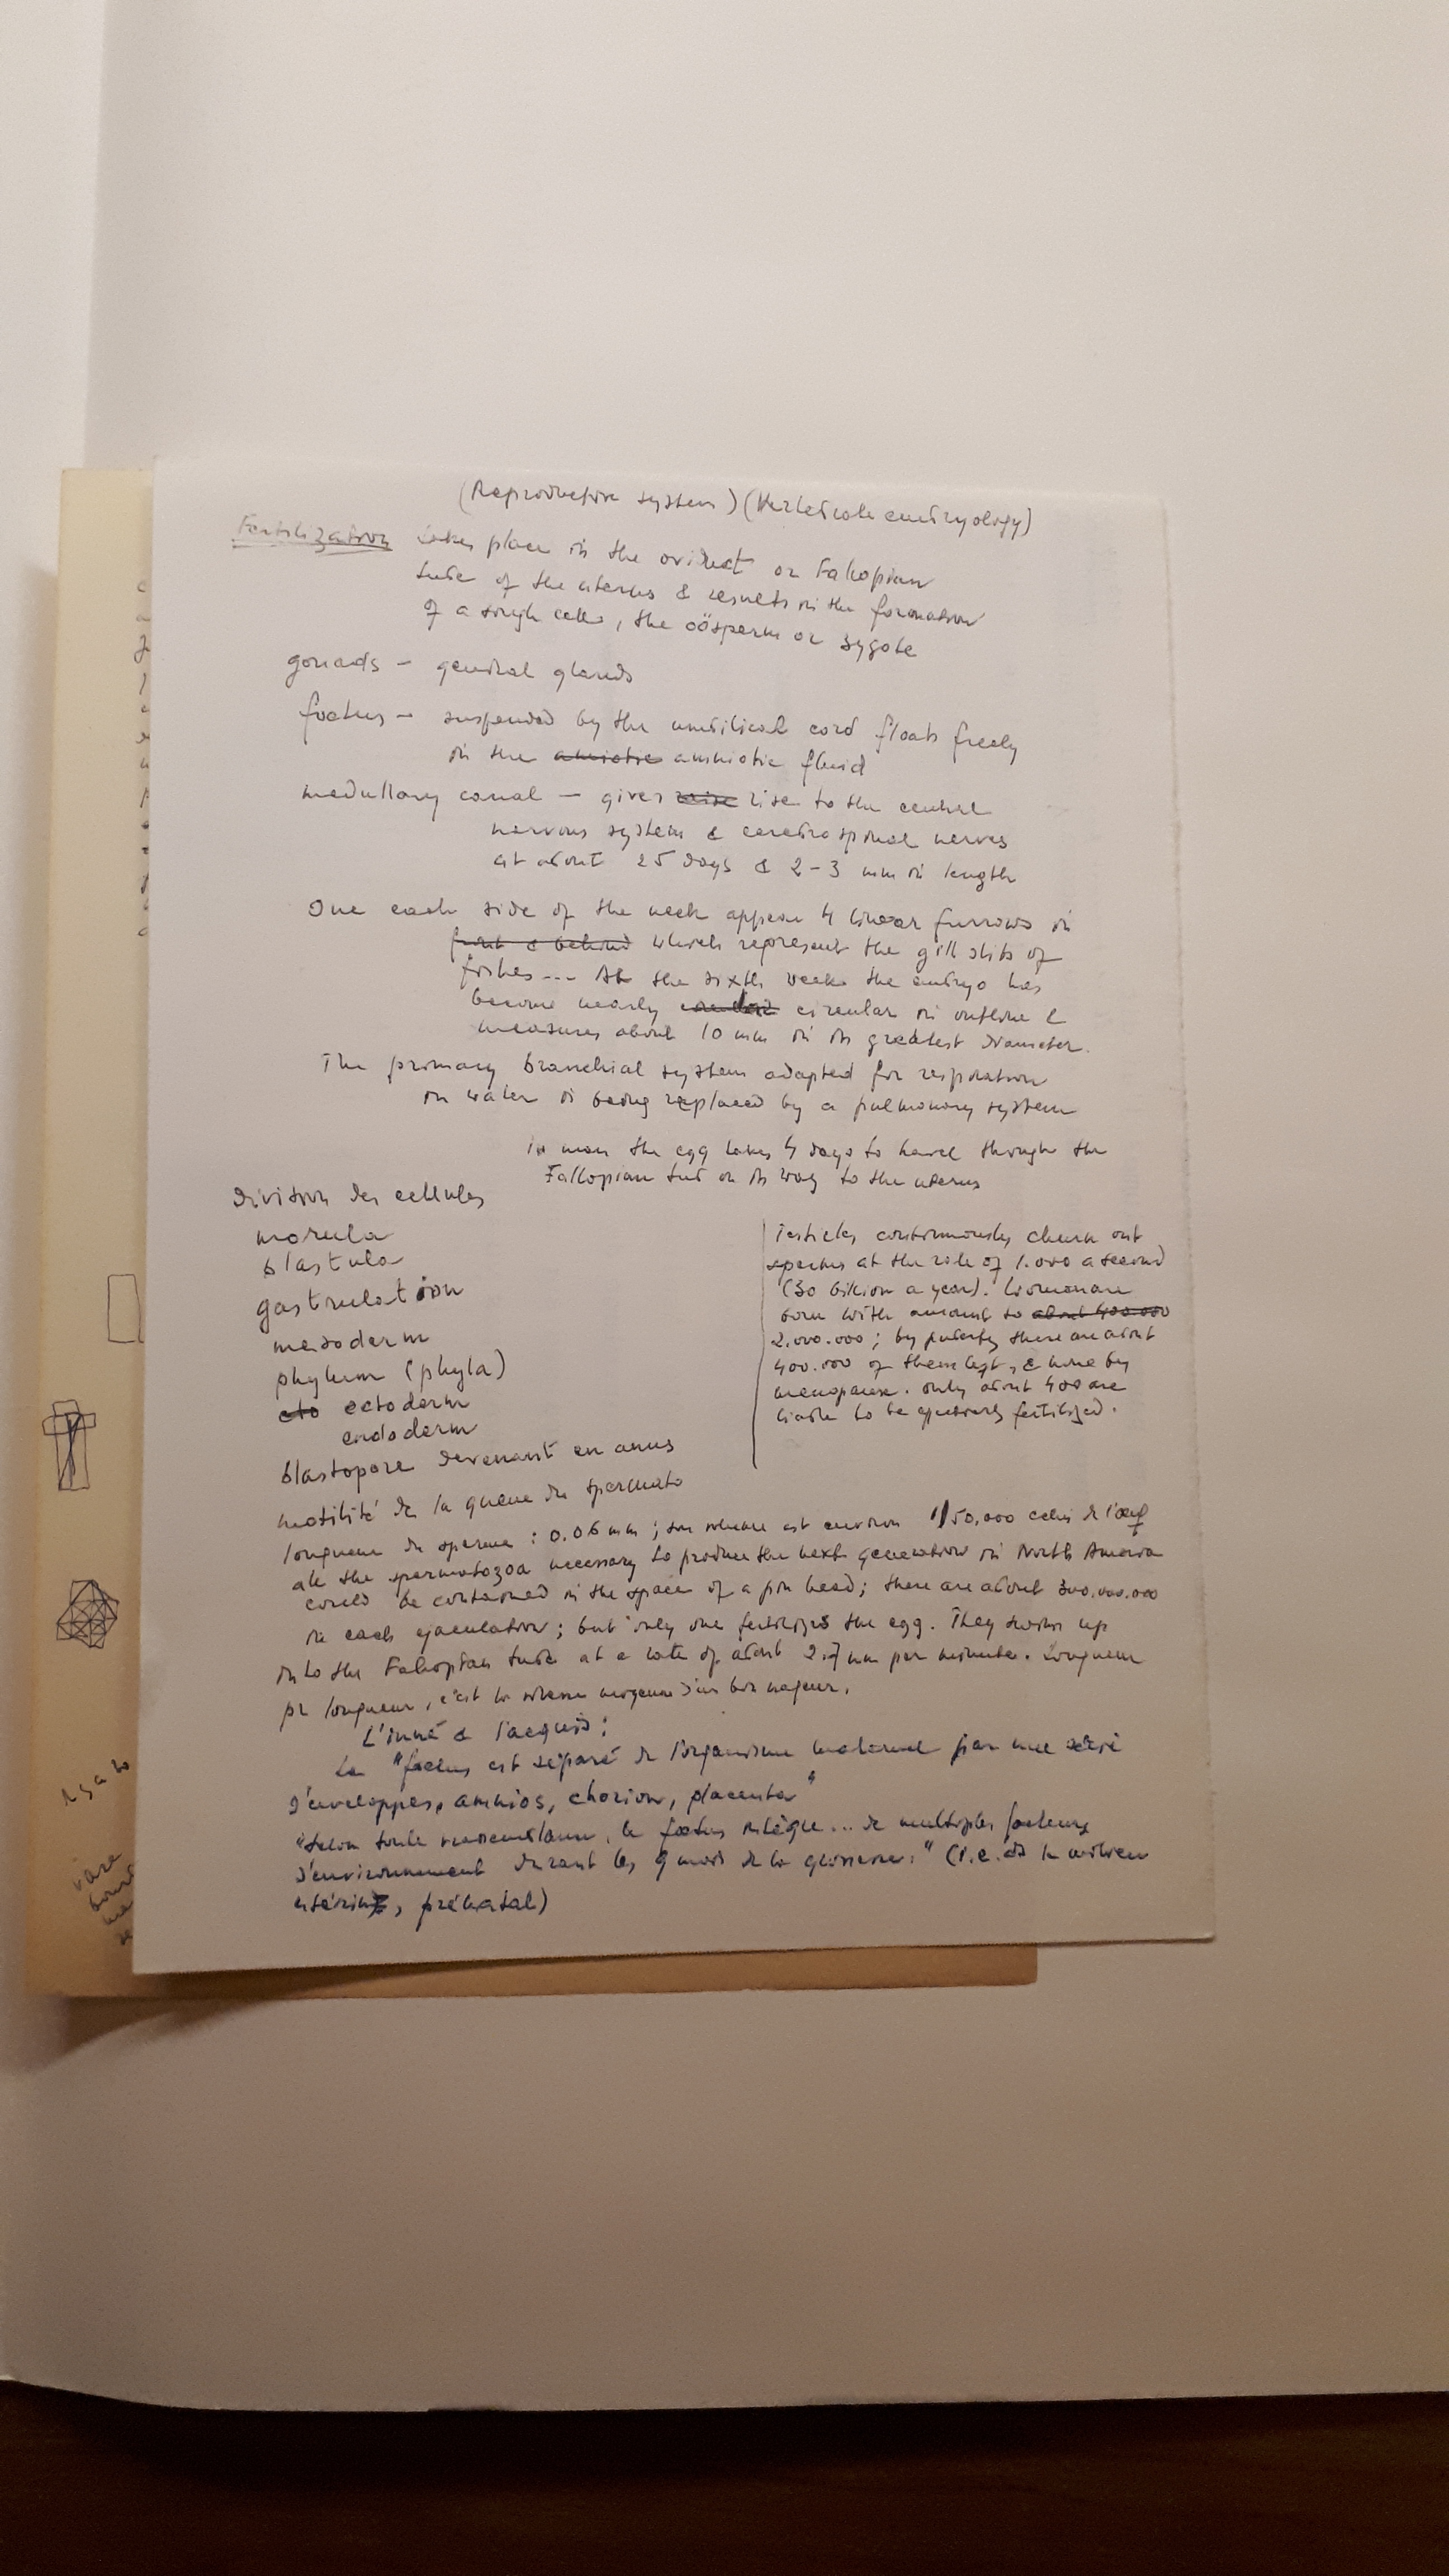 (Reproductive system) (Vertebrate embryology)
Fertilization takes place in the oviduct or Fallopian
tube of the uterus & results in the formation
of a single cell, the oösperm or zygote
gonads – genital glands
foetus – suspended by the umbilical cord floats freely
in the amiotic amniotic fluid
medullary canal – gives raise rise to the central
nervous system & cerebrospinal nerves
at about 25 days & 2-3 mm in length
One each side of the neck appear 4 linear furrows in
front & behind which represent the gill slits of
fishes... At the sixth week the embryo has
become nearly circular in outline &
measures about 10 mm in its greatest diameter.
The primary branchial system adapted for respiration
in water is being replaced by a pulmonary system
in man the egg takes 4 days to travel through the
Fallopian tube on its way to the uterus
Division des cellules
morula
blastula
gastrulation
mesoderm
phylum (phyla)
cto ectoderm
endoderm
blastopore devenant en anus
motilité de la queue du spermato
Testicles continuously churn out
sperms at the rate of 1.000 a second
(30 billion a year). Women are
born with amount to about 400.000
2.000.000; by puberty there are about
400.000 of them left, & none by
menopause. only about 400 are
liable to be effectively fertilized.
longueur du sperme : 0.06 mm ; son volume est environ 1/50,000 celui de l'œuf
all the spermatozoa necessary to produce the next generation in North America
could be contained in the space of a pin head; there are about 300.000.000
in each ejaculation; but only one fertilizes the egg. They swim up
into the Fallopian tube at a rate of about 2.7 mm per minute. Longueur
pr longueur, c'est la vitesse moyenne d'un bon nageur.
L'inné & l'acquis:
Le "foetus est séparé de l'organisme maternel par une série
d'enveloppes, amnios, chorion, placenta"
"Selon toute vraisemblance, le foetus intègre... de multiples facteurs
d'environnement durant les 9 mois de la grossesse." (i.e. ds le milieu
utérin, prénatal)